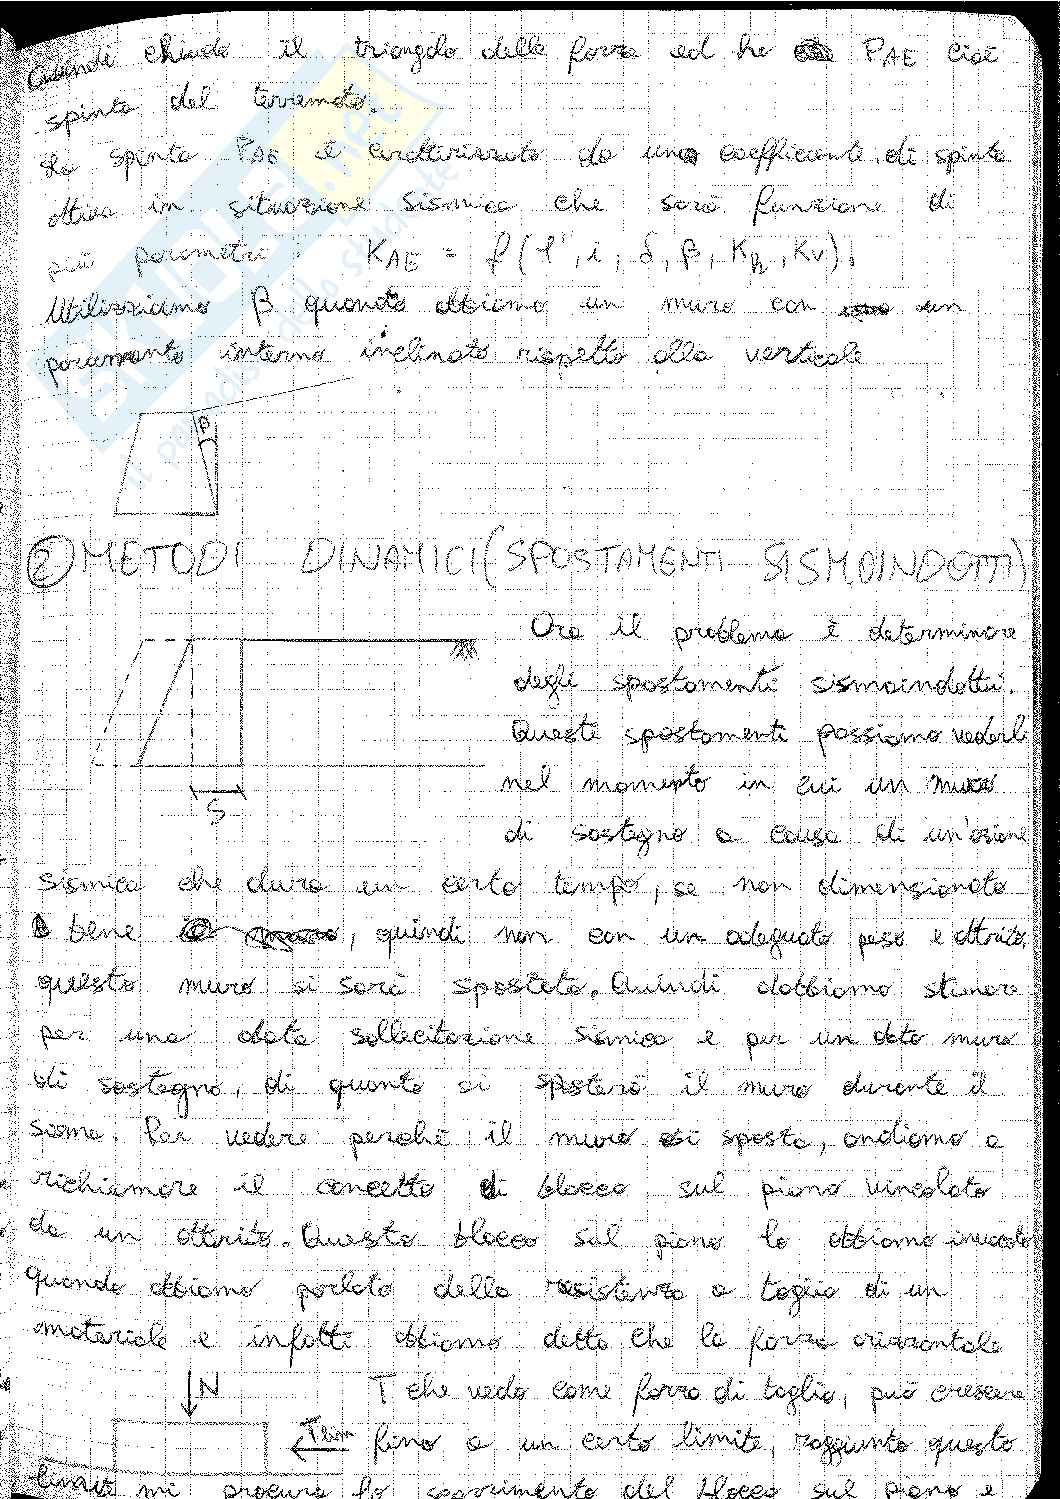 Quindi chiudo il triangolo delle forze ed ho PAE cioè
spinta del terremoto.
La spinta PAE è caratterizzata da una coefficiente di spinta
attiva in situazione sismica che sarà funzione di
più parametri KAE = f(φ', i, δ, β, Kh, Kv).
Utilizziamo β quando abbiamo un muro con un
paramento interno inclinato rispetto alla verticale
β
② METODI DINAMICI (SPOSTAMENTI SISMOINDOTTI)
Ora il problema è determinare
degli spostamenti sismoindotti.
Questi spostamenti possiamo vederli
nel momento in cui un muro
di sostegno a causa di un'azione
S
sismica che dura un certo tempo, se non dimensionato
bene, quindi non con un adeguato peso e attrito,
questo muro si sarà spostato. Quindi dobbiamo stimare
per una data sollecitazione sismica e per un dato muro
di sostegno, di quanto si sposterà il muro durante il
sisma. Per vedere perché il muro si sposta, andiamo a
richiamare il concetto di blocco sul piano vincolato
da un attrito. Questo blocco sul piano lo abbiamo
quando abbiamo parlato della resistenza a taglio di un
materiale e infatti abbiamo detto che la forza orizzontale
N
T che vedo come forza di taglio, può crescere
T lim
fino a un certo limite, raggiunto questo
limite mi procura lo scorrimento del blocco sul piano e
STUDENTI.MAT
il paradiso dello studente